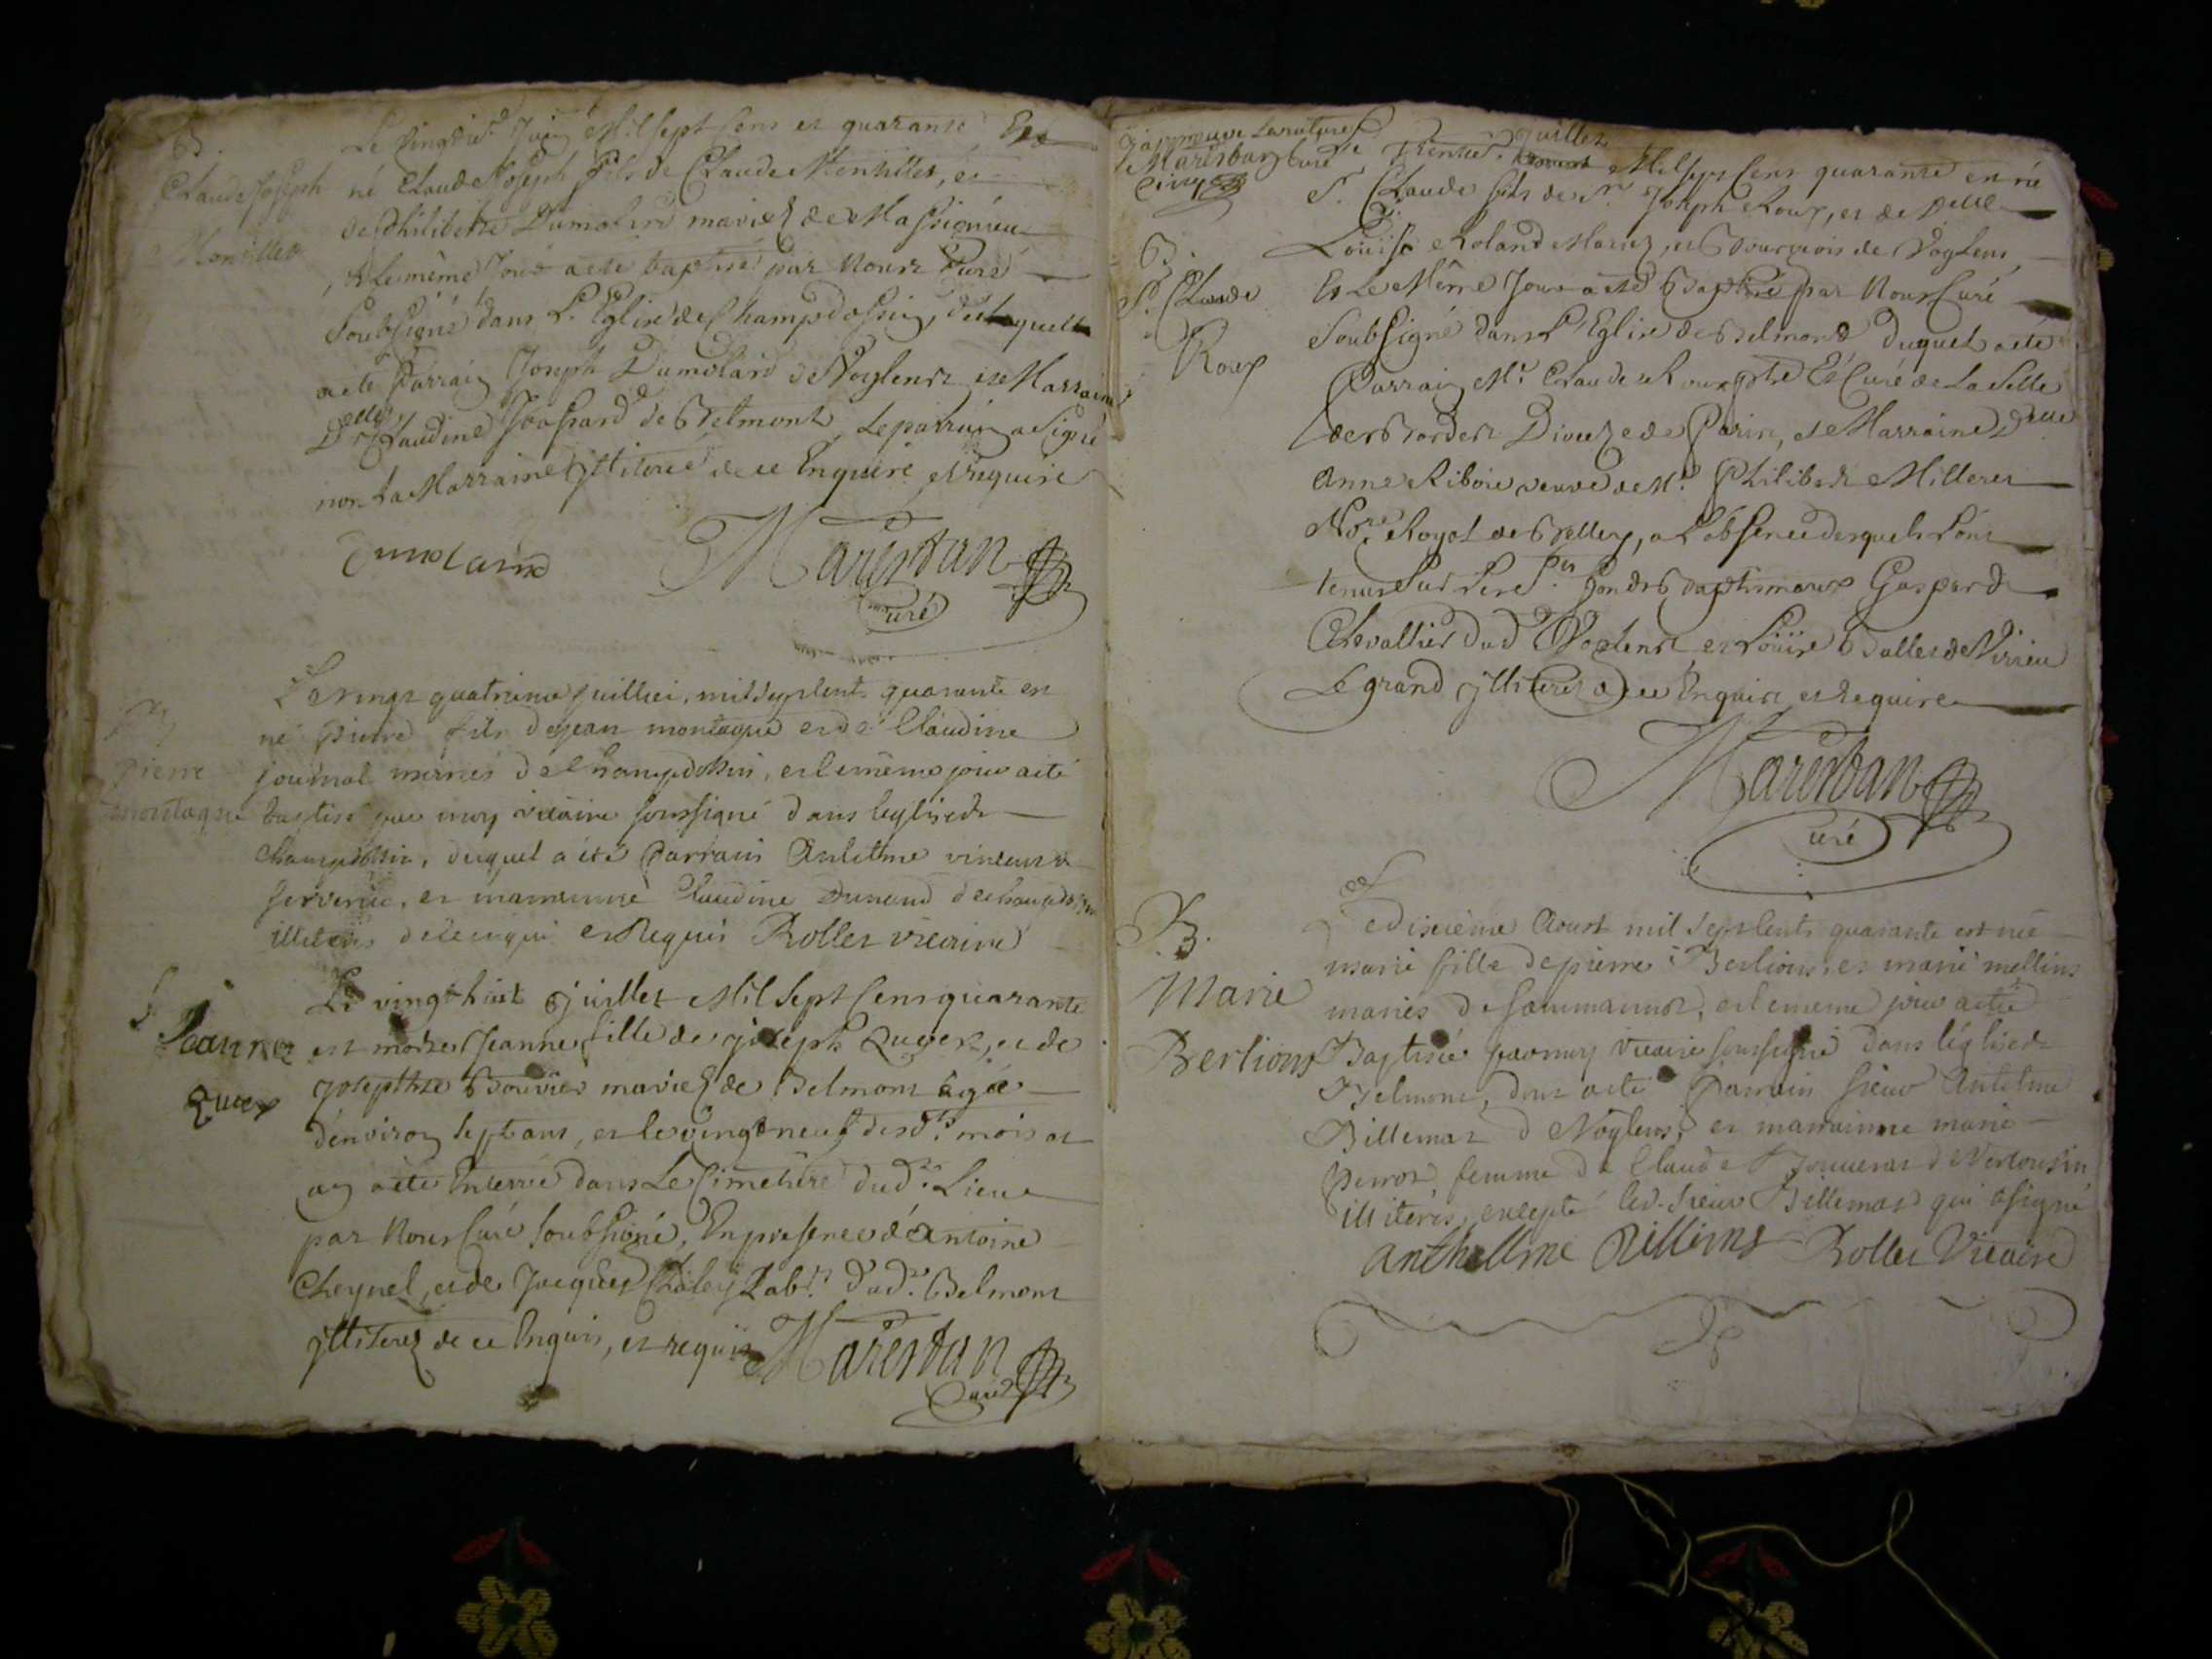 B.
Claude Joseph
Monillet
Le Juin Mil sept cens et quarante Est
né Claude Joseph fils de Claude et
de Philiberte mariez de Massignieu
, et le même Jour a ete baptisé par Nous Curé
Soubsigné dans L'Eglise de Champdossin,
a ete Parrain Joseph Dumolard de Voglens et Marraine
Delle Claudine de Belmont, le parrain a signé
non la Marraine jlliterée de ce Enquire et requise
Dumolard Marestan
Curé
Pierre
montagne
Le vingt quatrieme juillier, mil sept cents quarante est
né pierre fils de jean montagne et de Claudine
journal mariés de Champdossin, et le même jour a eté
baptisé par moy vicaire soussigné dans leglise de
Champdossin, duquel a été parrain Antelme
, et marrainne Claudine Dunand de champdossin
illiterés de ce enquis et Requis Rollet vicaire
Jeanne
Quex
Le vingt huit juillet Mil sept cens quarante
est morte Jeanne fille de joseph et de
josepthte Bouvier mariez de Belmont agée
d'environ sept ans, et le vingt neuf desdts mois et
an a ete Enterrée dans Le Cimetiere dudt Lieu
par Nous Curé soubsigné, En presence d'Antoine
Cheynel, et de Jacques Labrs dudt Belmont
jlliterez de ce Enquis, et requis Marestan
Curé
J'approuve la rature
Marestan Curé
B.
Sr Claude
Roux
Le Trente juillet Mil sept cens quarante est né
Sr Claude fils de Sr Joseph Roux, et de Delle
Louise Roland Mariez, et Bourgeois de Voglens,
Et Le Même Jour a eté Baptisé par Nous Curé
Soubsigné dans L'Eglise de Belmond duquel a eté
Parrain Mr Claude Roux ptre Et Curé de La Selle
des Bordes Diocese de Paris, et Marraine Delle
Anne Riboie veuve de Mr Philibert Milleret
Nore Royal de Belley, a L'absence desquels l'ont
tenus Sur Les Sts fonds Baptismaux Gaspard
Chevallier dud Voglens et Louise Ballet de Virieu
Le grand jlliterez de ce Enquis et Requis
Marestan
Curé
B.
Marie
Berlioux
Le dixieme Aoust mil sept cents quarante est née
marie fille de pierre Berlioux et marie mellins
mariés de, et le meme jour a eté
Baptisée par moy vicaire soussigné dans l'église de
Belmont, dont a eté Parrain sieur Antelme
Billemaz de Voglens, et marrainne marie
perrot, femme de Claude Jouvenat de Vertousin
illiterés, excepté led. sieur Billemaz qui a signé
Anthellme Rollet Vicaire